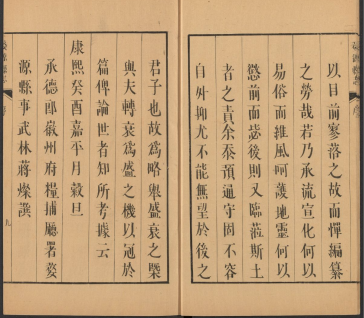 以目前寥落之故而憚編纂
之勞哉若乃承流宣化何以
易俗而維風呵護地靈何以
懲前而毖後則又臨蒞斯土
者之責余忝預通守固不容
自舛抑尤不能無望於後之
君子也故為略舉盛衰之槩
與夫轉衰為盛之機以冠於
篇俾論世者知所考據云
康熙癸酉嘉平月穀旦
承德郎徽州府糧捕廳署婺
源縣事武林蔣燦譔
九